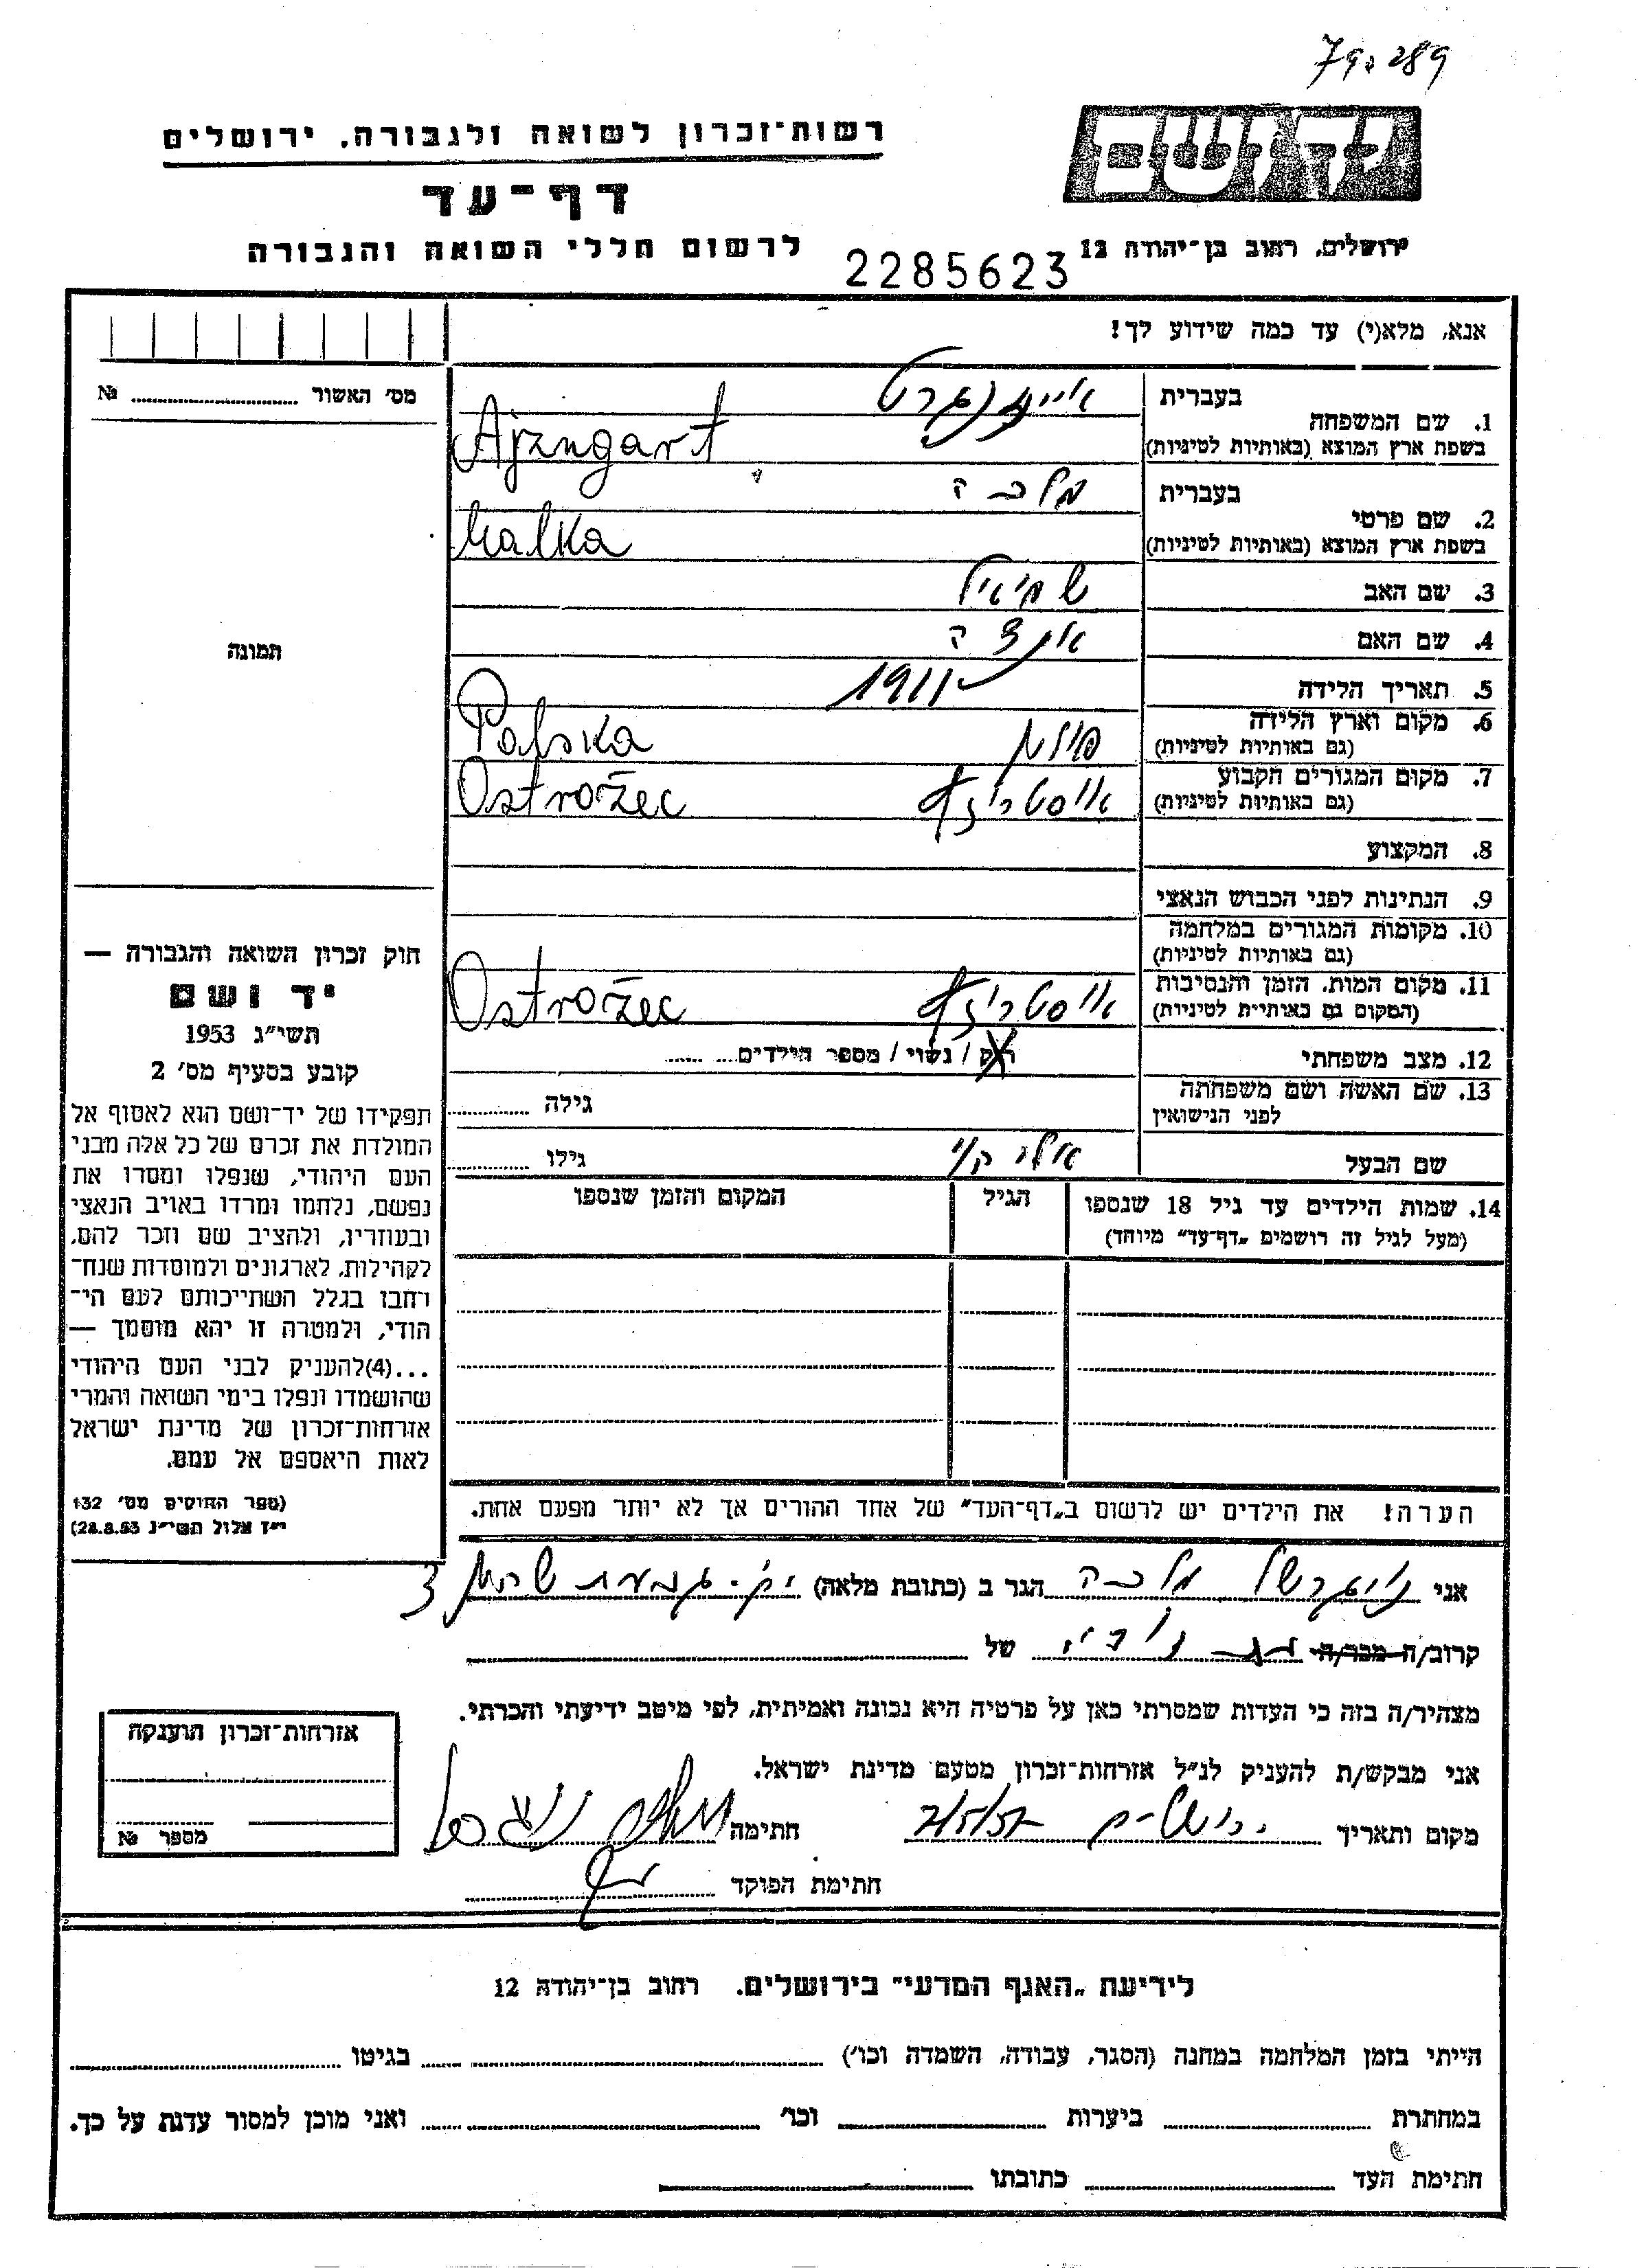 79.289
יד ושם
רשות־זכרון לשואה ולגבורה, ירושלים
דף־עד
ירושלים, רחוב בן־יהודה 12
לרשום חללי השואה והגבורה
2285623
אנא, מלא(י) עד כמה שידוע לך!
מס׳ האשור № ........
1. שם המשפחה
בעברית אייזנגרט
בשפת ארץ המוצא (באותיות לטיניות) Ajzngart
2. שם פרטי
בעברית מלכה
בשפת ארץ המוצא (באותיות לטיניות) Malka
3. שם האב שמואל
4. שם האם
5. תאריך הלידה 1911
6. מקום וארץ הלידה פולין
(גם באותיות לטיניות) Polska
7. מקום המגורים הקבוע
(גם באותיות לטיניות) Ostrożec
8. המקצוע
9. הנתינות לפני הכבוש הנאצי
10. מקומות המגורים במלחמה
(גם באותיות לטיניות)
11. מקום המות, הזמן והנסיבות
(המקום גם באותיות לטיניות) Ostrożec
12. מצב משפחתי רוק / נשוי / מספר הילדים........
13. שם האשה ושם משפחתה
לפני הנישואין גילה ........
שם הבעל גילו ........
14. שמות הילדים עד גיל 18 שנספו הגיל המקום והזמן שנספו
(מעל לגיל זה רושמים „דף־עד״ מיוחד)
הערה! את הילדים יש לרשום ב„דף־העד״ של אחד ההורים אך לא יותר מפעם אחת.
תמונה
חוק זכרון השואה והגבורה —
יד ושם
תשי״ג 1953
קובע בסעיף מס׳ 2
תפקידו של יד־ושם הוא לאסוף אל
המולדת את זכרם של כל אלה מבני
העם היהודי, שנפלו ומסרו את
נפשם, נלחמו ומרדו באויב הנאצי
ובעוזריו, ולהציב שם וזכר להם,
לקהילות, לארגונים ולמוסדות שנח־
רבו בגלל השתייכותם לעם הי־
הודי, ולמטרה זו יהא מוסמך —
...(4) להעניק לבני העם היהודי
שהושמדו ונפלו בימי השואה והמרי
אזרחות־זכרון של מדינת ישראל
לאות היאספם אל עמם.
(ספר החוקים מס׳ 132
י״ז אלול תשי״ג 28.8.53)
אני מלכה הגר ב (כתובת מלאה) 3
קרוב/ה מכר/ה של
מצהיר/ה בזה כי העדות שמסרתי כאן על פרטיה היא נכונה ואמיתית, לפי מיטב ידיעתי והכרתי.
אני מבקש/ת להעניק לנ״ל אזרחות־זכרון מטעם מדינת ישראל.
מקום ותאריך ירושלים חתימה
חתימת הפוקד
אזרחות־זכרון הוענקה
מספר №
לידיעת „האגף המדעי״ בירושלים. רחוב בן־יהודה 12
הייתי בזמן המלחמה במחנה (הסגר, עבודה, השמדה וכו׳) ........ בגיטו ........
במחתרת ........ ביערות ........ וכו׳ ........ ואני מוכן למסור עדות על כך.
חתימת העד ........ כתובתו ........